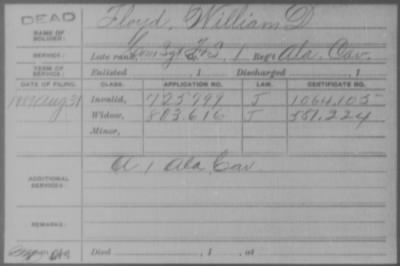 DEAD
NAME OF SOLDIER: Floyd, William D
SERVICE: Late rank, Sgt 1 Reg't Ala. Cav.
TERM OF SERVICE: Enlisted , 1 Discharged , 1
DATE OF FILING. CLASS. APPLICATION NO. LAW. CERTIFICATE NO.
Aug 31 Invalid, 725,799 J 1064,105
Widow, 803,616 J 551,224
Minor,
ADDITIONAL SERVICES: 1 Ala Cav
REMARKS:
Died , 1 , at